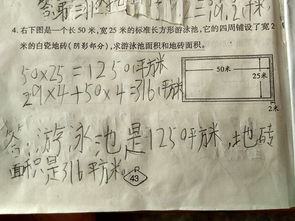 4. 右下图是一个长 50 米,宽 25 米的标准长方形游泳池,它的四周铺设了宽 2
米的白瓷地砖(阴影部分),求游泳池面积和地砖面积。
50×25=1250平方米
29×4+50×4=316平方米
50米
25米
2米
答:游泳池是1250平方米,地砖
面积是316平方米。
43